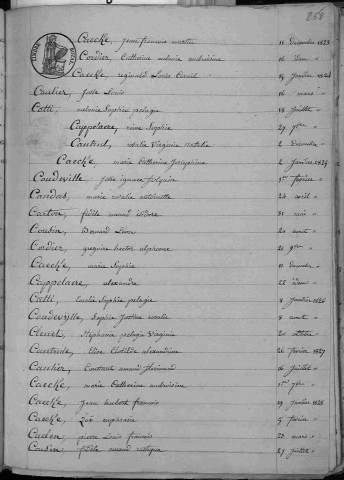 268
TIMBRE ROYAL
Caecke, Jean francois martin 11 Décembre 1823
Cordier, Catherine melanie ambroisine 16 idem "
Caecke, reginald Louis Daniel 15 Janvier 1824
Caulier, Julie Louise 16 mars "
Catti, melanie Sophie pelagie 18 Juillet "
Cappelaere, reine Sophie 29 7bre "
Canteul, rosalie Virginie natalie 2 Décembre "
Caecke, marie Catherine Josephine 2 Janvier 1825
Coudeville, Julie ignace folquin 1er fevrier "
Candas, marie rosalie antoinette 24 avril "
Carton, fidèle amand isidore 31 mai "
Cousin, Bernard Léon 20 aout "
Cordier, gregoire hector alphonse 21 9bre "
Caecke, marie Sophie 11 décembre "
Cappelaere, alexandre 22 idem "
Catti, Emelie Sophie pelagie 8 Janvier 1826
Coudeville, Sophie Justine rosalie 8 aout "
Clicnet, Stéphanie pelagie Virginie 20 octobre "
Canteul, Elise Clotilde alexandrine 26 fevrier 1827
Caulier, Constant amand florimond 16 Juillet "
Caecke, marie Catherine ambroisine 1er 7bre "
Caecke, Jean hubert francois 29 Janvier 1828
Caecke, Zoé euphrasie 5 fevrier "
Caelen, pierre Louis francois 20 mars "
Cousin, fidèle amand 27 Juillet "